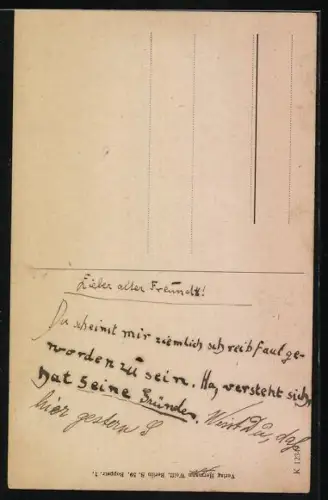 Lieber alter Freund!
Du scheinst mir ziemlich schreibfaul ge-
worden zu sein. Na, versteht sich,
hat seine Gründe. Weißt Du, daß
hier gestern
Verlag Hermann Wolff, Berlin S. 59, Boppstr. 7.